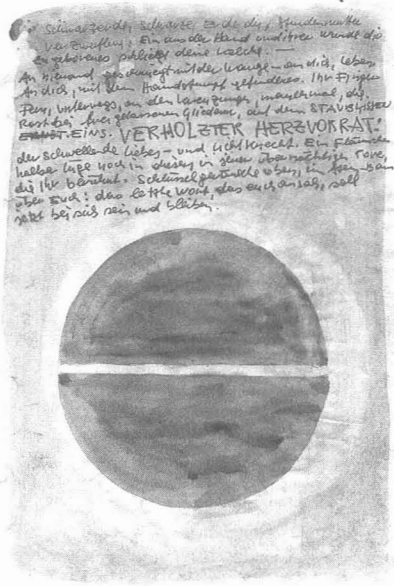 Schwarzerde, schwarze, Erde du, Stundenmutter
Verzweiflung: Ein aus der Hand und ihrer Wunde dir
Zugeborenes schließt deine Kelche. —
An niemand geschmiegt mit der Wange — an dich, Leben.
An dich, mit dem Handstumpf gefundenes. Ihr Finger.
Fern, unterwegs, an den Kreuzungen, manchmal, die
Rast bei freigelassenen Gliedern, auf dem STAUBKISSEN
EINS. VERHOLZTER HERZVORRAT:
der schwelende Liebes- und Lichtknecht. Ein Flämmchen
halber Lüge noch in dieser, in jener übernächtigen Pore,
die Ihr berührt. Schlüsselgeräusche oben, im Atem-Baum
über Euch: das letzte Wort, das euch ansah, soll
jetzt bei sich sein und bleiben.